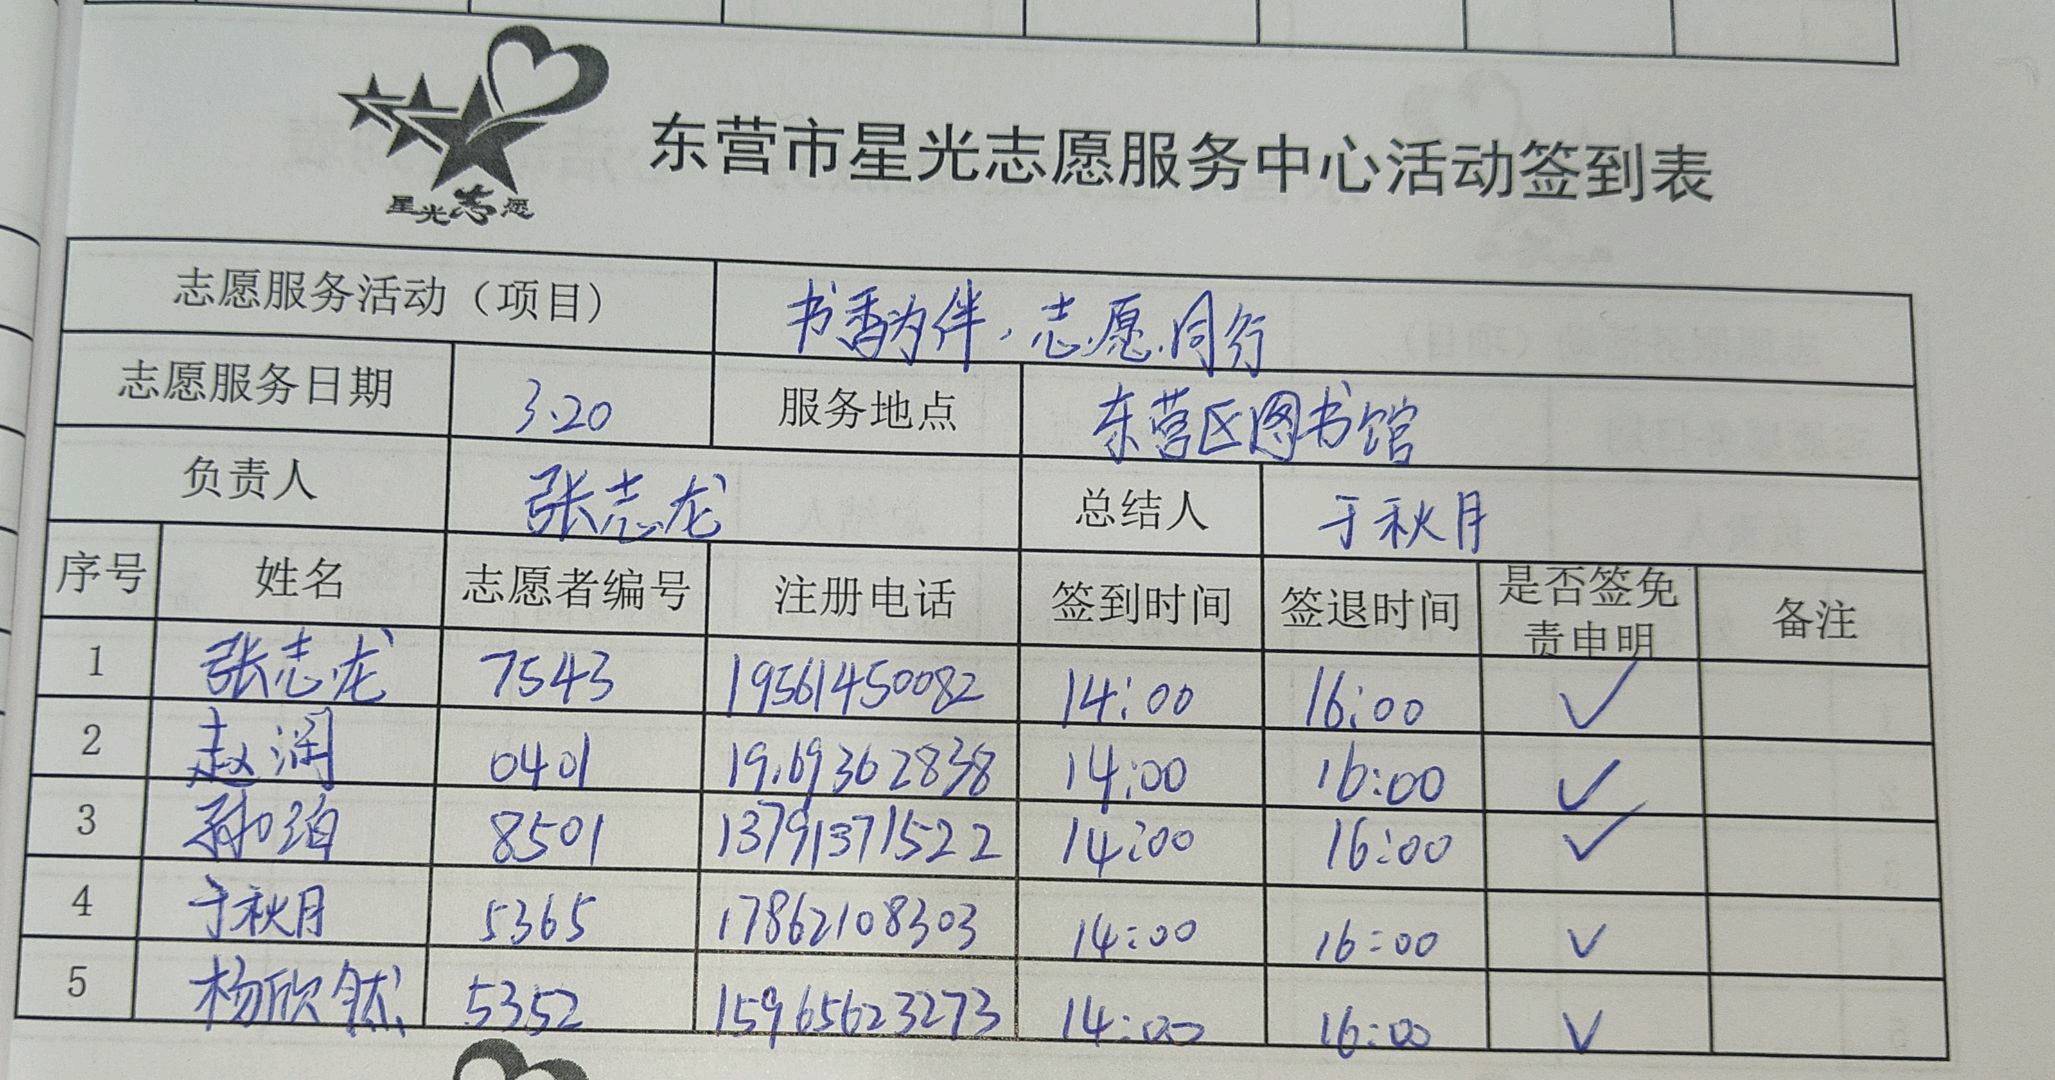 星光志愿
东营市星光志愿服务中心活动签到表
志愿服务活动（项目） 书香为伴，志愿同行
志愿服务日期 3.20 服务地点 东营区图书馆
负责人 张志龙 总结人 于秋月
序号 姓名 志愿者编号 注册电话 签到时间 签退时间 是否签免责申明 备注
1 张志龙 7543 19561450082 14:00 16:00 ✓
2 赵润 0401 19169362838 14:00 16:00 ✓
3 孙珀 8501 13791371522 14:00 16:00 ✓
4 于秋月 5365 17862108303 14:00 16:00 ✓
5 杨欣 5352 15965623273 14:00 16:00 ✓